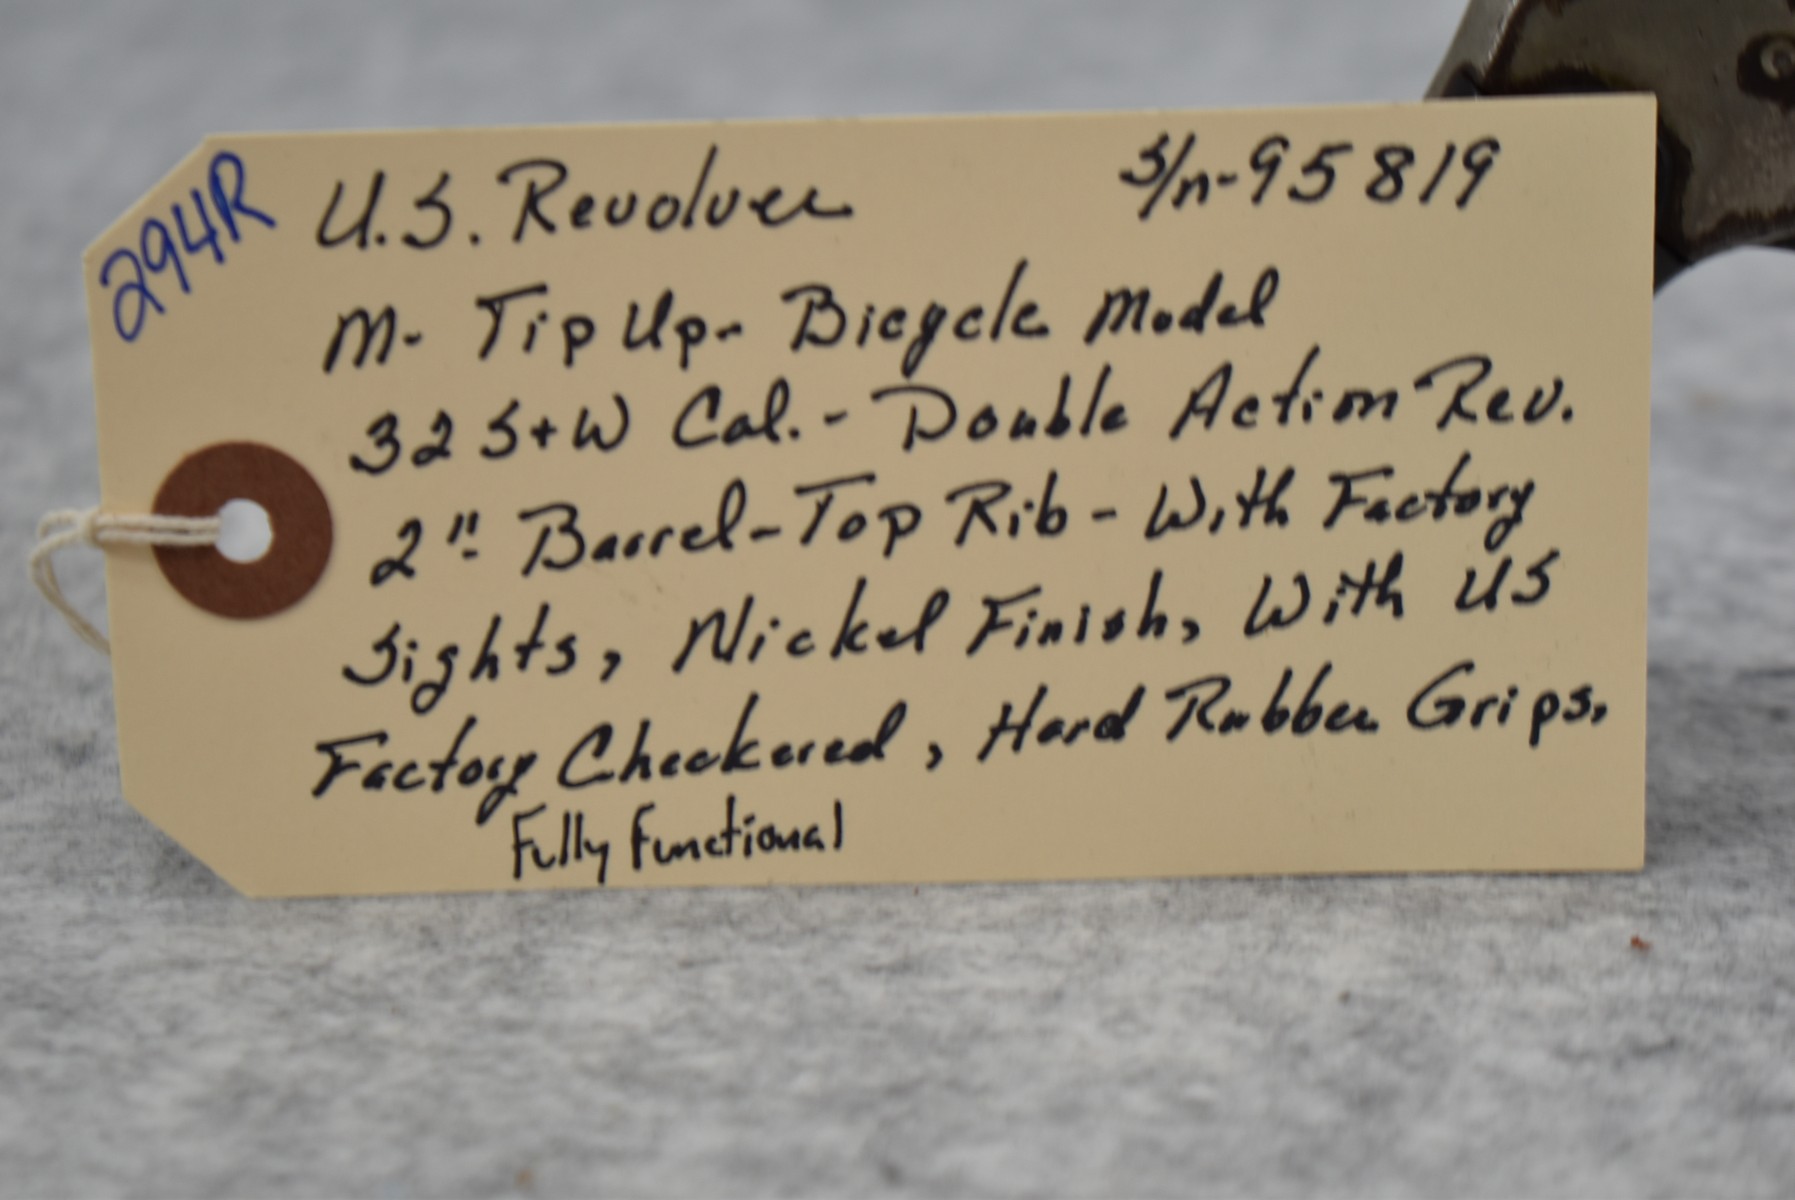 294R
U.S. Revolver S/n-95819
M- Tip Up- Bicycle Model
32 S+W Cal. - Double Action Rev.
2" Barrel - Top Rib - With Factory
Sights, Nickel Finish, With US
Factory Checkered, Hard Rubber Grips.
Fully Functional